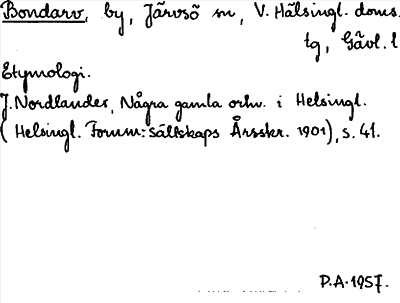 Bondarv, by, Järvsö sn, V. Hälsingl. doms.
tg, Gävl. l
Etymologi.
J. Nordlander, Några gamla ortn. i Helsingl.
( Helsingl. Fornm:sällskaps Årsskr. 1901), s. 41.
P.A. 1957.